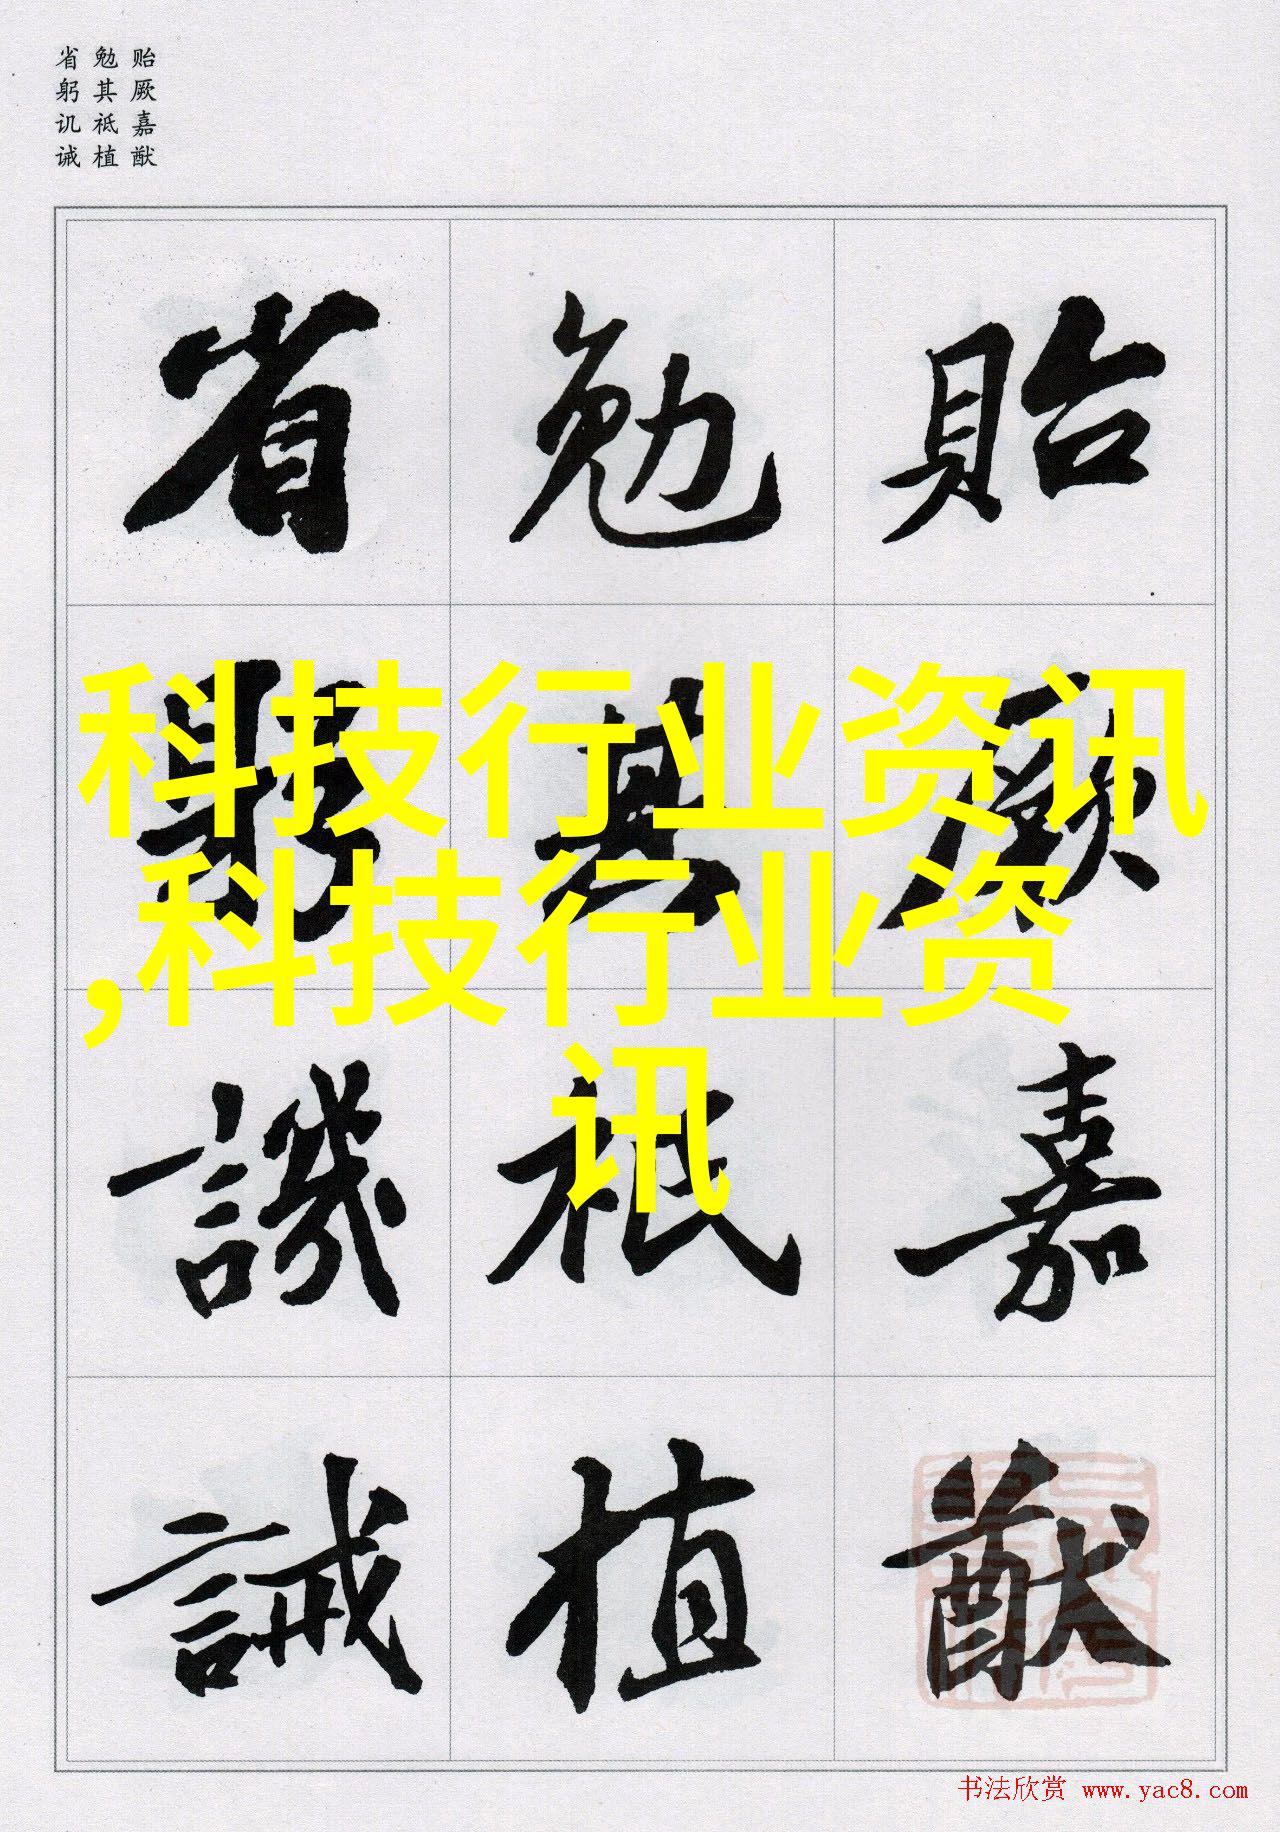 贻厥嘉猷
勉其祗植
省躬讥诫
貽厥嘉猷
勉其祗植
省躬譏誡
科技行业资讯
,科技行业资
讯
书法欣赏 www.yac8.com